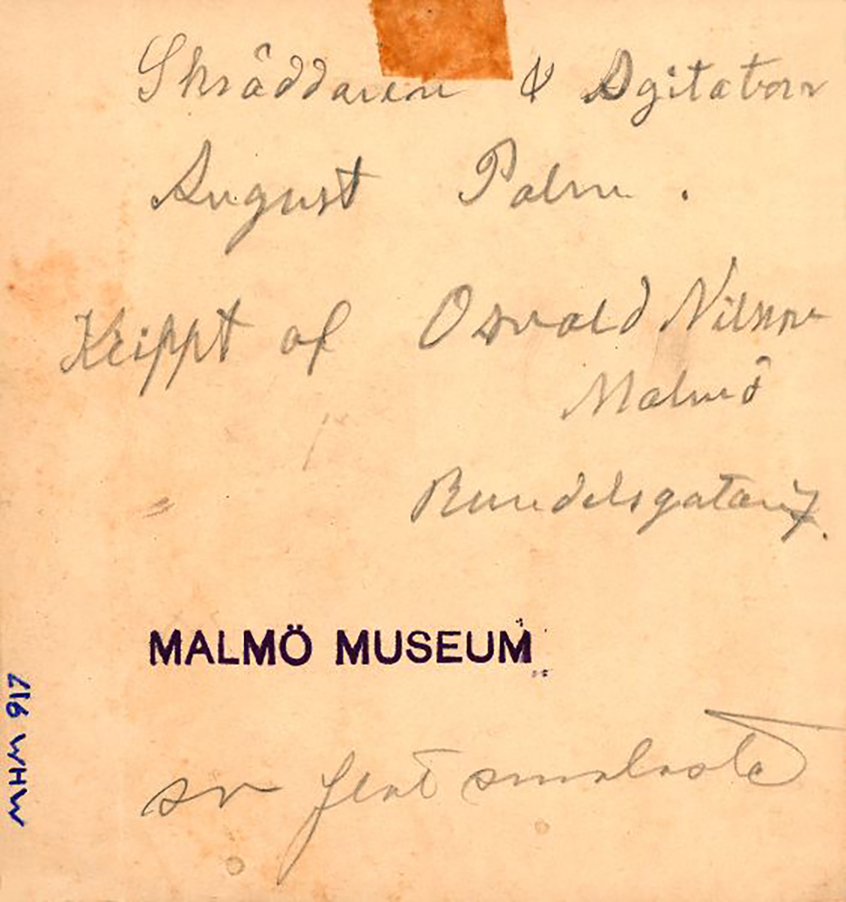 Skräddaren & Agitatorn
August Palm.
Klippt af Osvald Nilsson
Malmö
Rundelsgatan 7.
MALMÖ MUSEUM
MHM 917